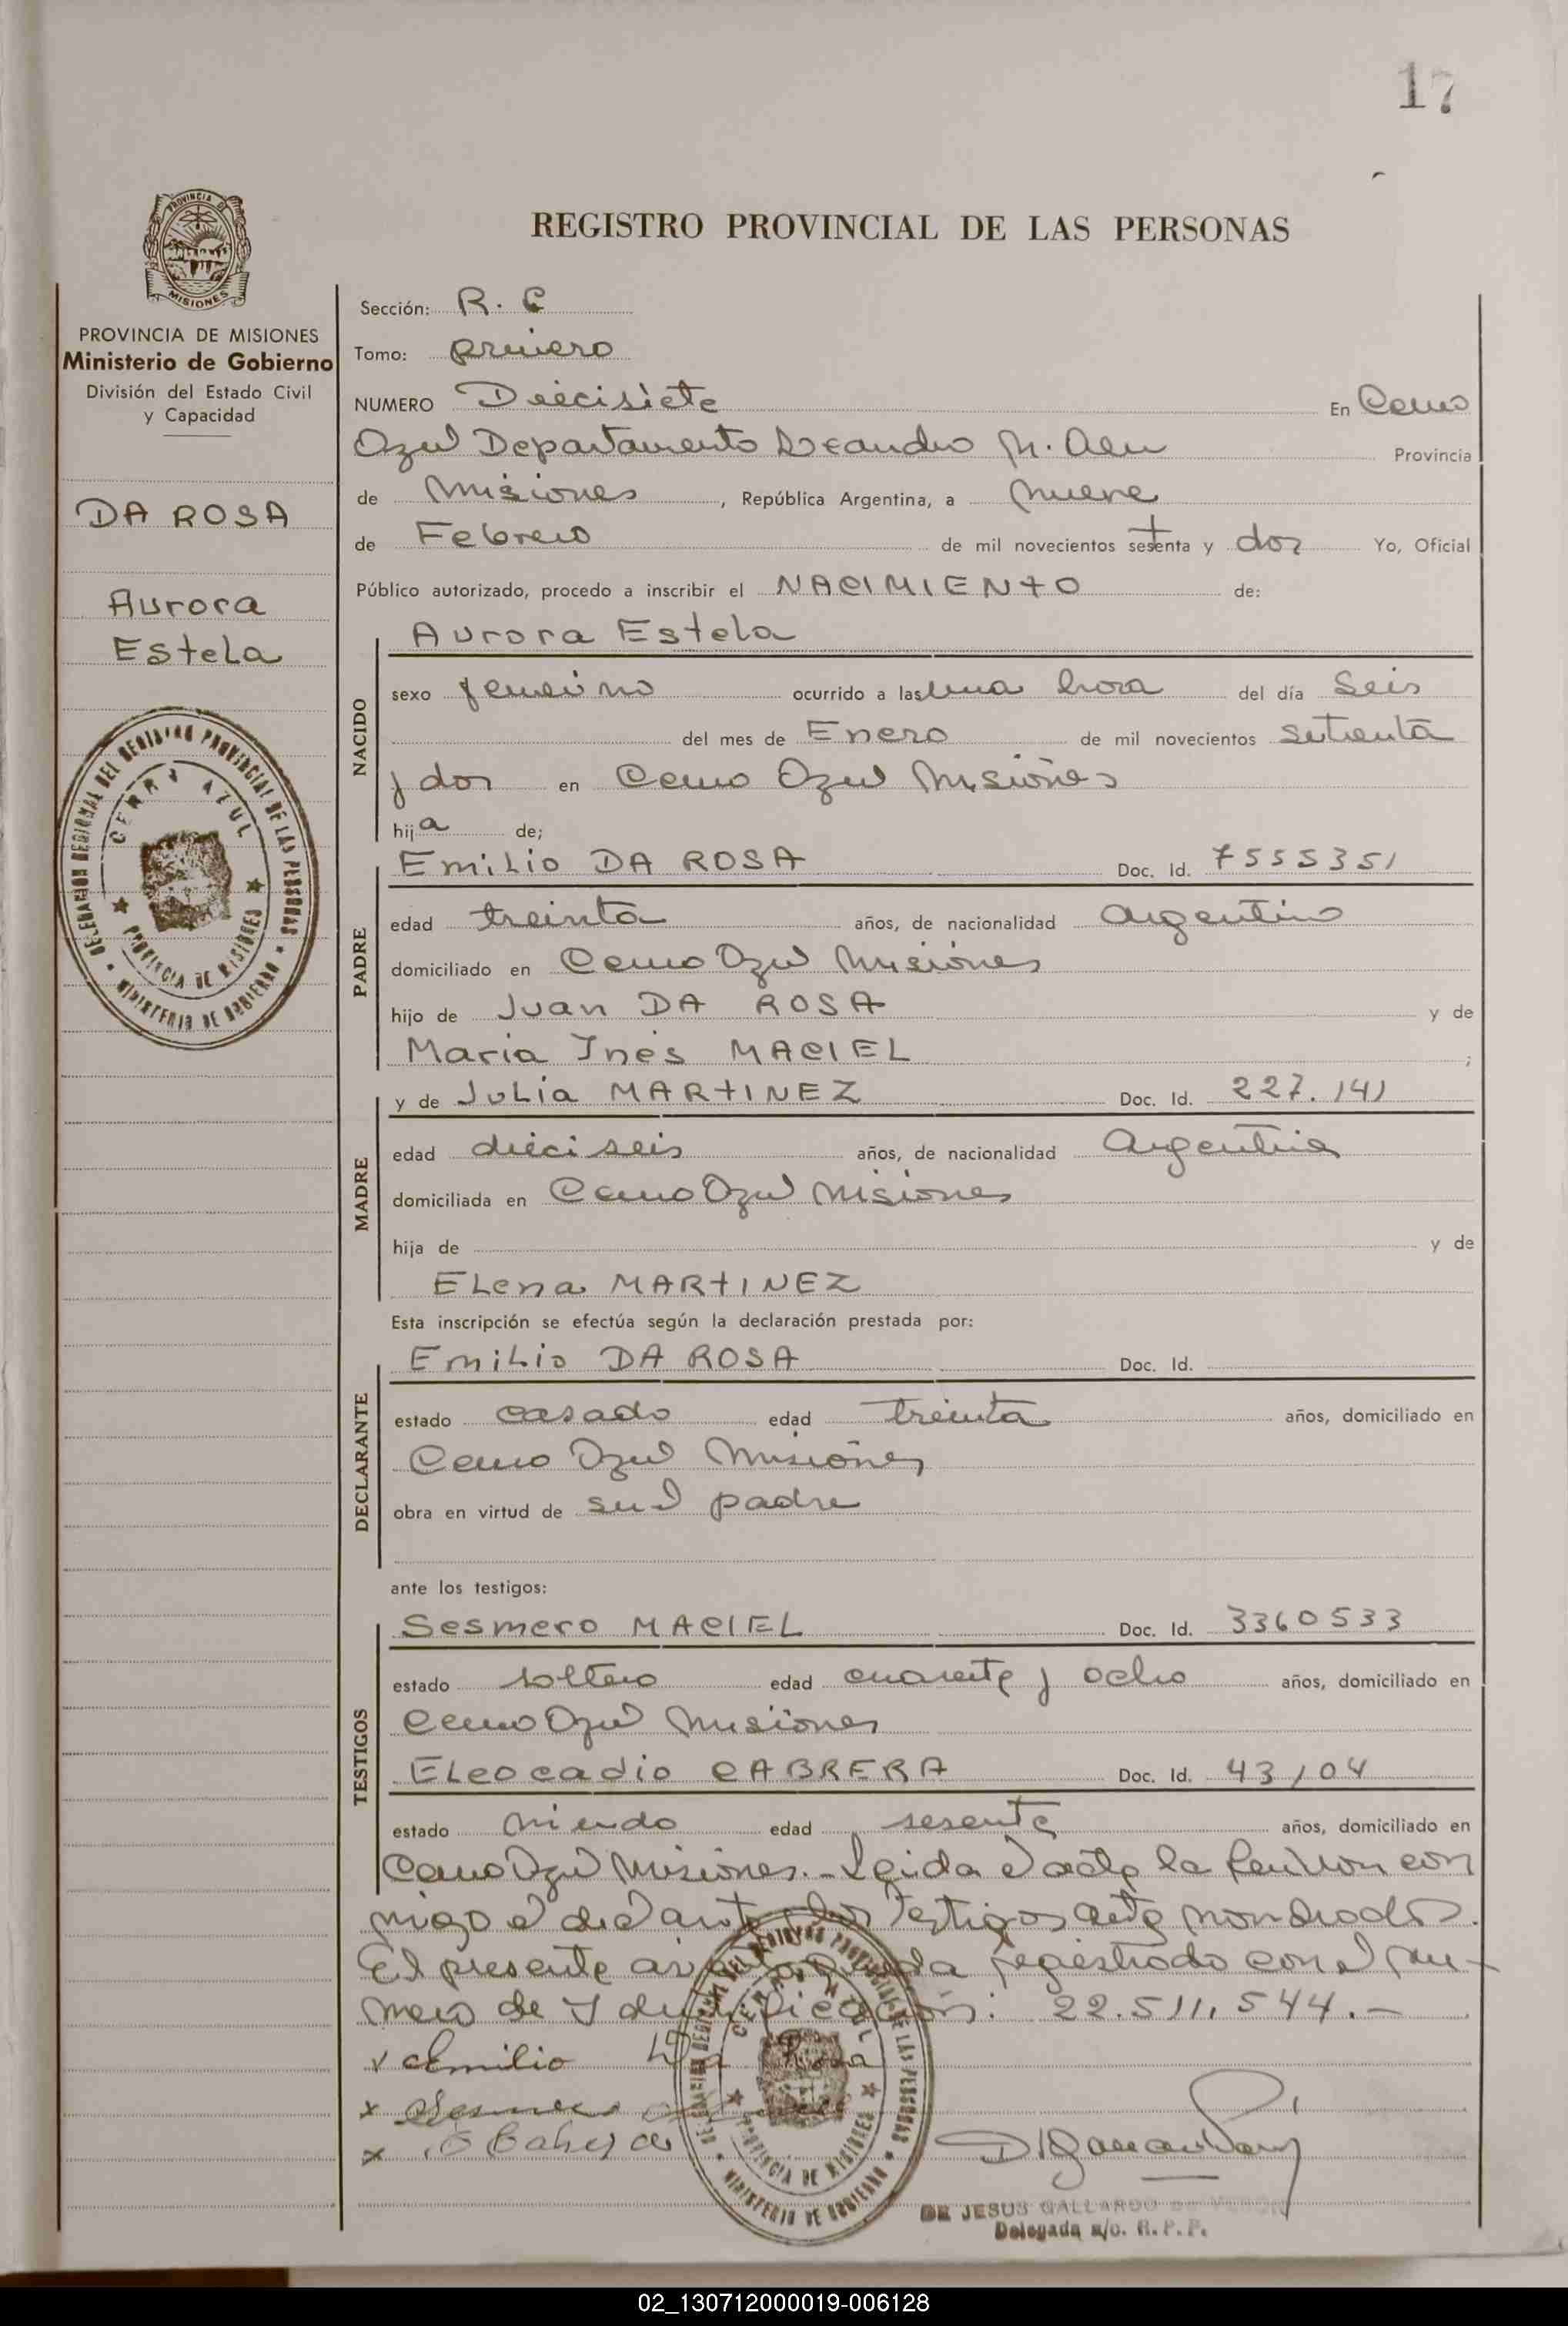 17
PROVINCIA DE
MISIONES
REGISTRO PROVINCIAL DE LAS PERSONAS
PROVINCIA DE MISIONES
Ministerio de Gobierno
División del Estado Civil
y Capacidad
DA ROSA
Aurora
Estela
DELEGACION REGIONAL DEL REGISTRO PROVINCIAL DE LAS PERSONAS
CERRO AZUL
PROVINCIA DE MISIONES
MINISTERIO DE GOBIERNO
Sección: R. C
Tomo: primero
NUMERO Diecisiete En Cerro
Azul Departamento Leandro N. Alem Provincia
de Misiones, República Argentina, a nueve
de Febrero de mil novecientos setenta y dos Yo, Oficial
Público autorizado, procedo a inscribir el NACIMIENTO de:
Aurora Estela
NACIDO
sexo femenino ocurrido a las una hora del día Seis
del mes de Enero de mil novecientos setenta
y dos en Cerro Azul Misiones
hija de;
Emilio DA ROSA Doc. Id. 7555351
PADRE
edad treinta años, de nacionalidad Argentino
domiciliado en Cerro Azul Misiones
hijo de Juan DA ROSA y de
Maria Inés MACIEL ;
y de Julia MARTINEZ Doc. Id. 227.141
MADRE
edad dieciseis años, de nacionalidad Argentina
domiciliada en Cerro Azul Misiones
hija de y de
Elena MARTINEZ
Esta inscripción se efectúa según la declaración prestada por:
Emilio DA ROSA Doc. Id.
DECLARANTE
estado casado edad treinta años, domiciliado en
Cerro Azul Misiones
obra en virtud de ser el padre
ante los testigos:
Sesmero MACIEL Doc. Id. 3360533
TESTIGOS
estado soltero edad cuarenta y ocho años, domiciliado en
Cerro Azul Misiones
Eleocadio CABRERA Doc. Id. 43104
estado viudo edad sesenta años, domiciliado en
Cerro Azul Misiones.- Leida el acta la firman con
migo el declarante y los testigos nombrados.
El presente asiento queda registrado con el nu-
mero de Identificación: 22.511.544.-
x Emilio Da Rosa
x
x E Cabrera
DELEGACION REGIONAL DEL REGISTRO PROVINCIAL DE LAS PERSONAS
CERRO AZUL
PROVINCIA DE MISIONES
MINISTERIO DE GOBIERNO
DE JESUS GALLARDO de
Delegada a/c. R.P.P.
02_130712000019-006128